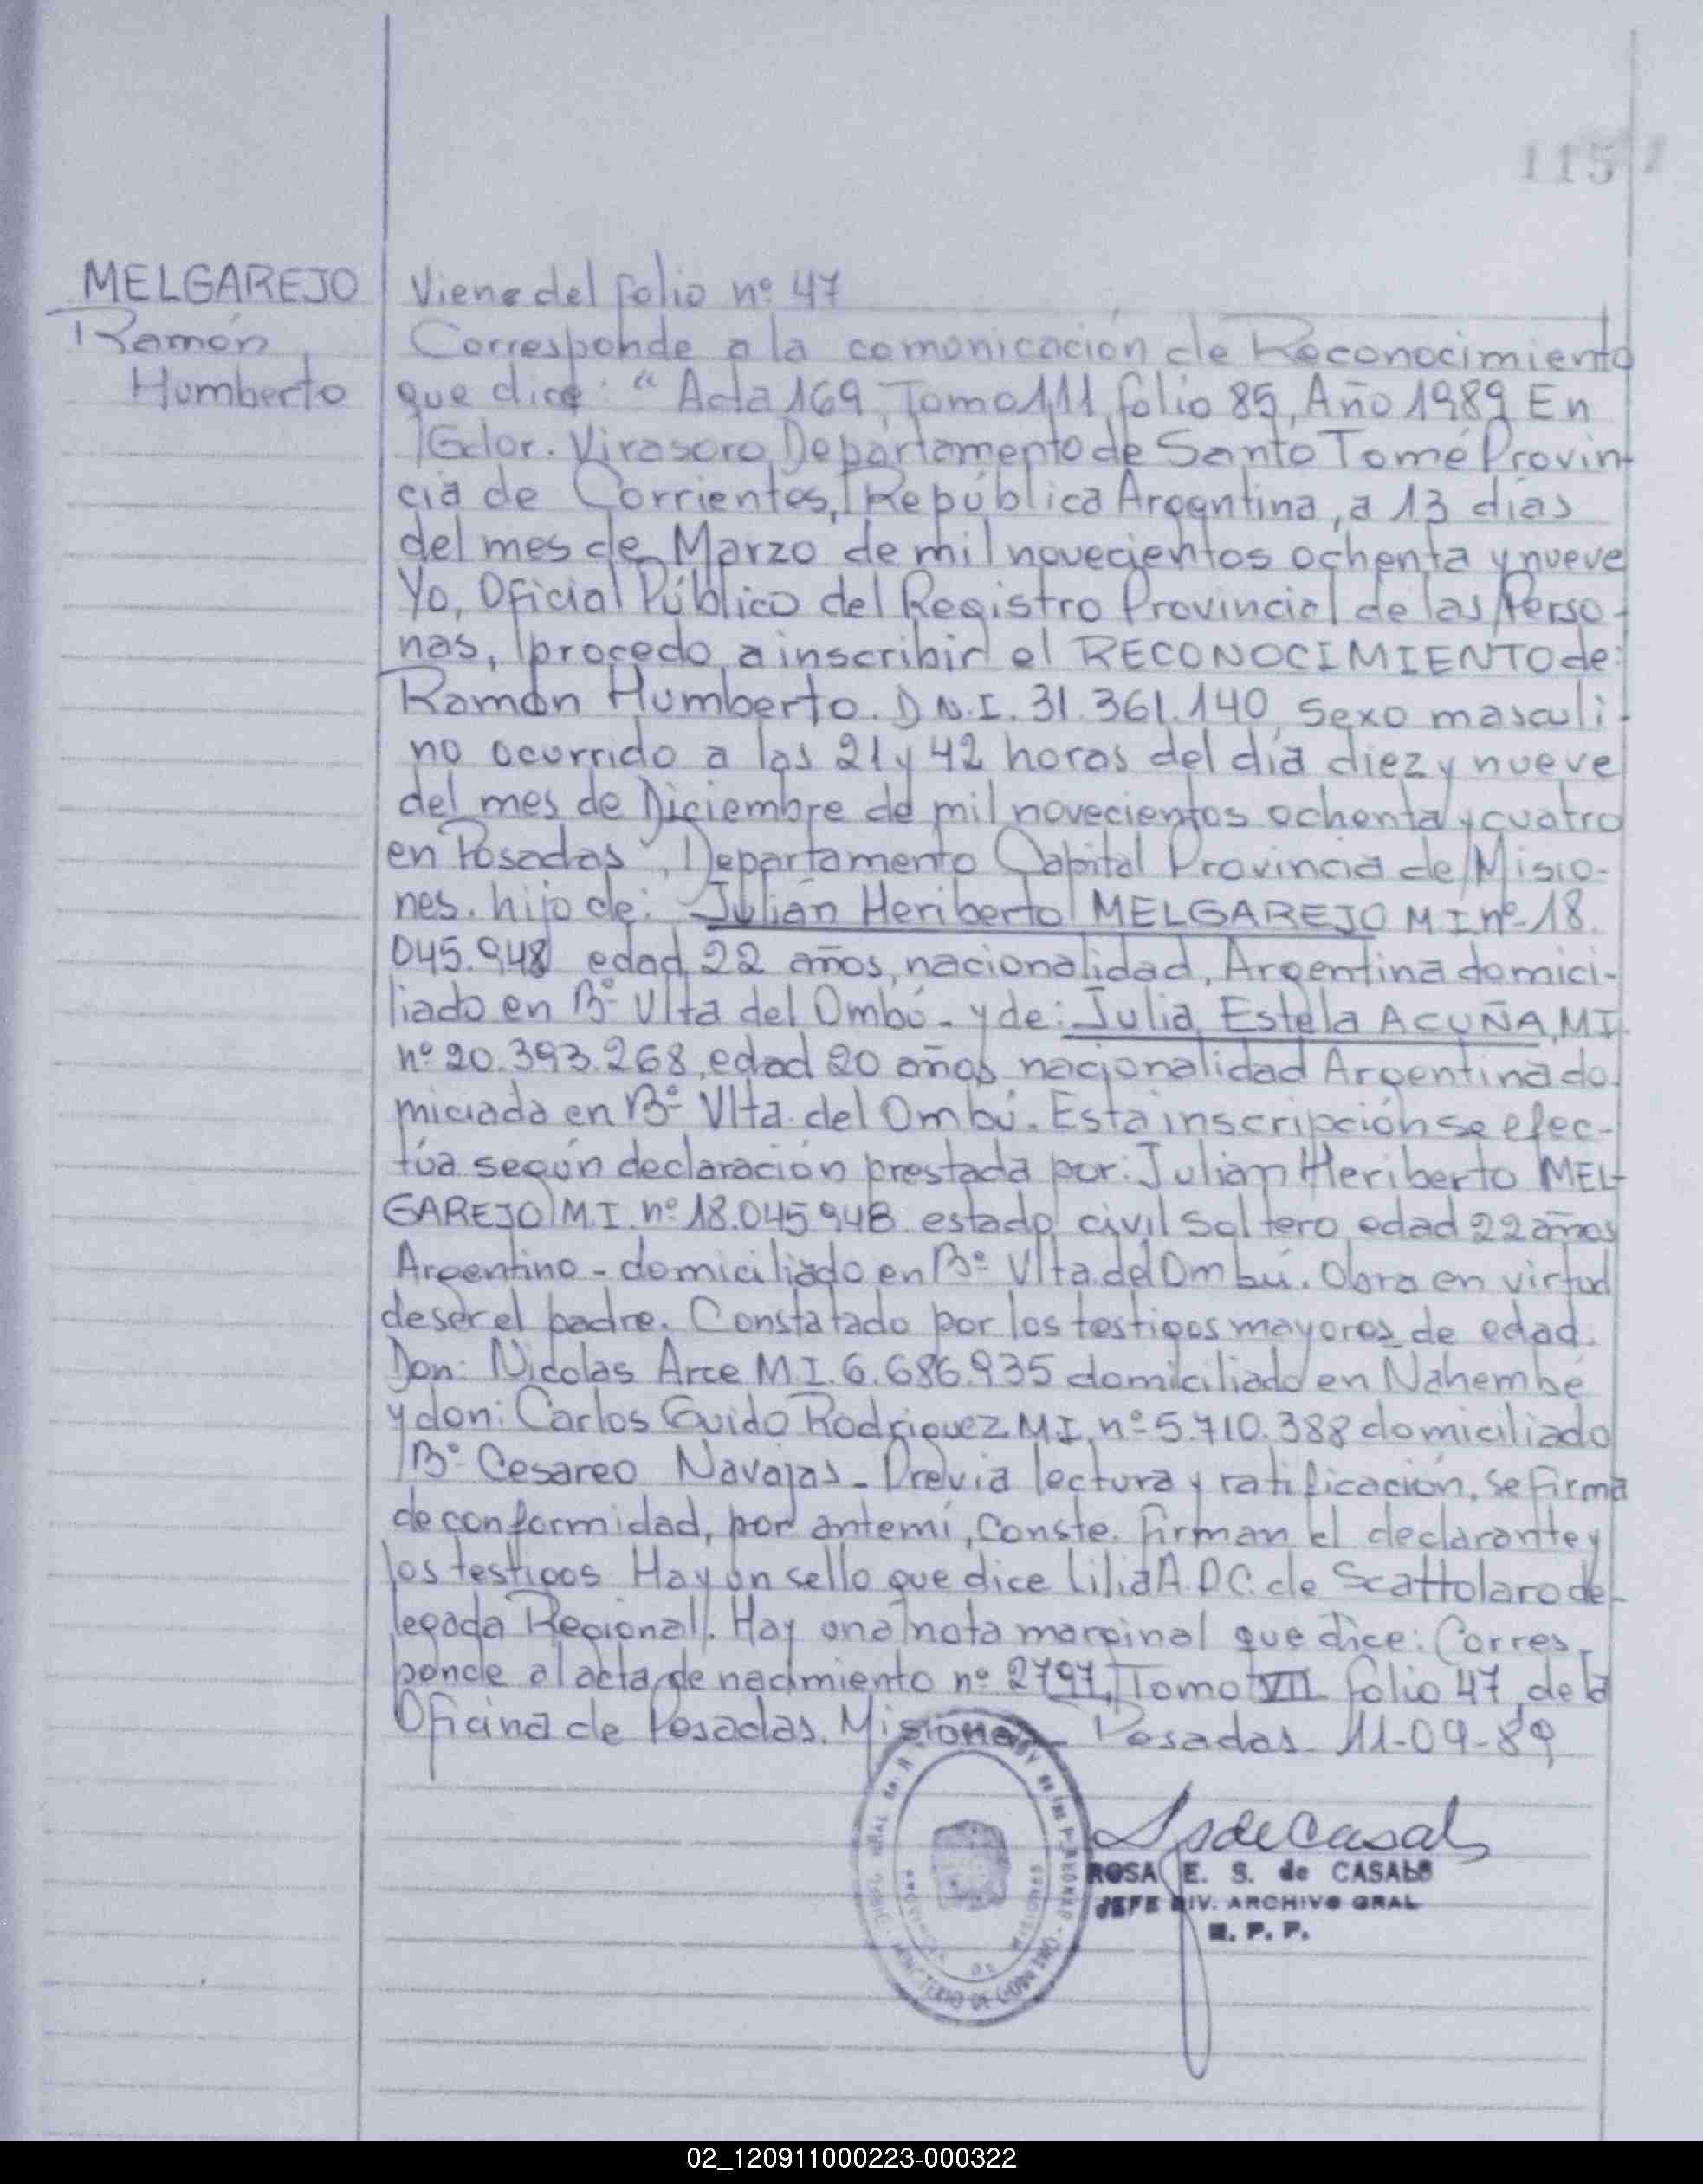 115
MELGAREJO
Ramón
Humberto
Viene del folio nº 47
Corresponde a la comunicación de Reconocimiento
que dice: "Acta 169, Tomo 111 folio 85, Año 1989 En
Gdor. Virasoro, Departamento de Santo Tomé Provin-
cia de Corrientes, República Argentina, a 13 días
del mes de Marzo de mil novecientos ochenta y nueve
Yo, Oficial Público del Registro Provincial de las Perso-
nas, procedo a inscribir el RECONOCIMIENTO de:
Ramón Humberto. D.N.I. 31.361.140, Sexo masculi-
no ocurrido a las 21 y 42 horas del día diez y nueve
del mes de Diciembre de mil novecientos ochenta y cuatro
en Posadas, Departamento Capital Provincia de Misio-
nes. hijo de: Julián Heriberto MELGAREJO M I nº 18.
045.948 edad 22 años, nacionalidad, Argentina domici-
liado en Bº Vlta del Ombú - y de: Julia Estela ACUÑA, MI
nº 20.393.268, edad 20 años, nacionalidad Argentina do
miciada en Bº Vlta. del Ombú. Esta inscripción se efec-
túa según declaración prestada por: Julian Heriberto MEL-
GAREJO M.I. nº 18.045.948 estado civil Soltero, edad 22 años
Argentino - domiciliado en Bº Vlta. del Ombú. Obra en virtud
de ser el padre. Constatado por los testigos mayores de edad.
Don: Nicolas Arce M.I. 6.686.935 domiciliado en Ñahembé
y don: Carlos Guido Rodriguez M.I. nº 5.710.388 domiciliado
Bº Cesareo Navajas - Previa lectura y ratificación, se firma
de conformidad, por antemí, Conste. Firman el declarante y
los testigos. Hay un sello que dice Lilia A. D C. de Scattolaro de-
legada Regional. Hay una nota marginal que dice: Corres-
ponde al acta de nacimiento nº 2797, Tomo VII folio 47, de la
Oficina de Posadas. Misiones - Posadas 11-09-89
ROSA E. S. de CASALS
JEFE DIV. ARCHIVO GRAL
R. P. P.
02_120911000223-000322